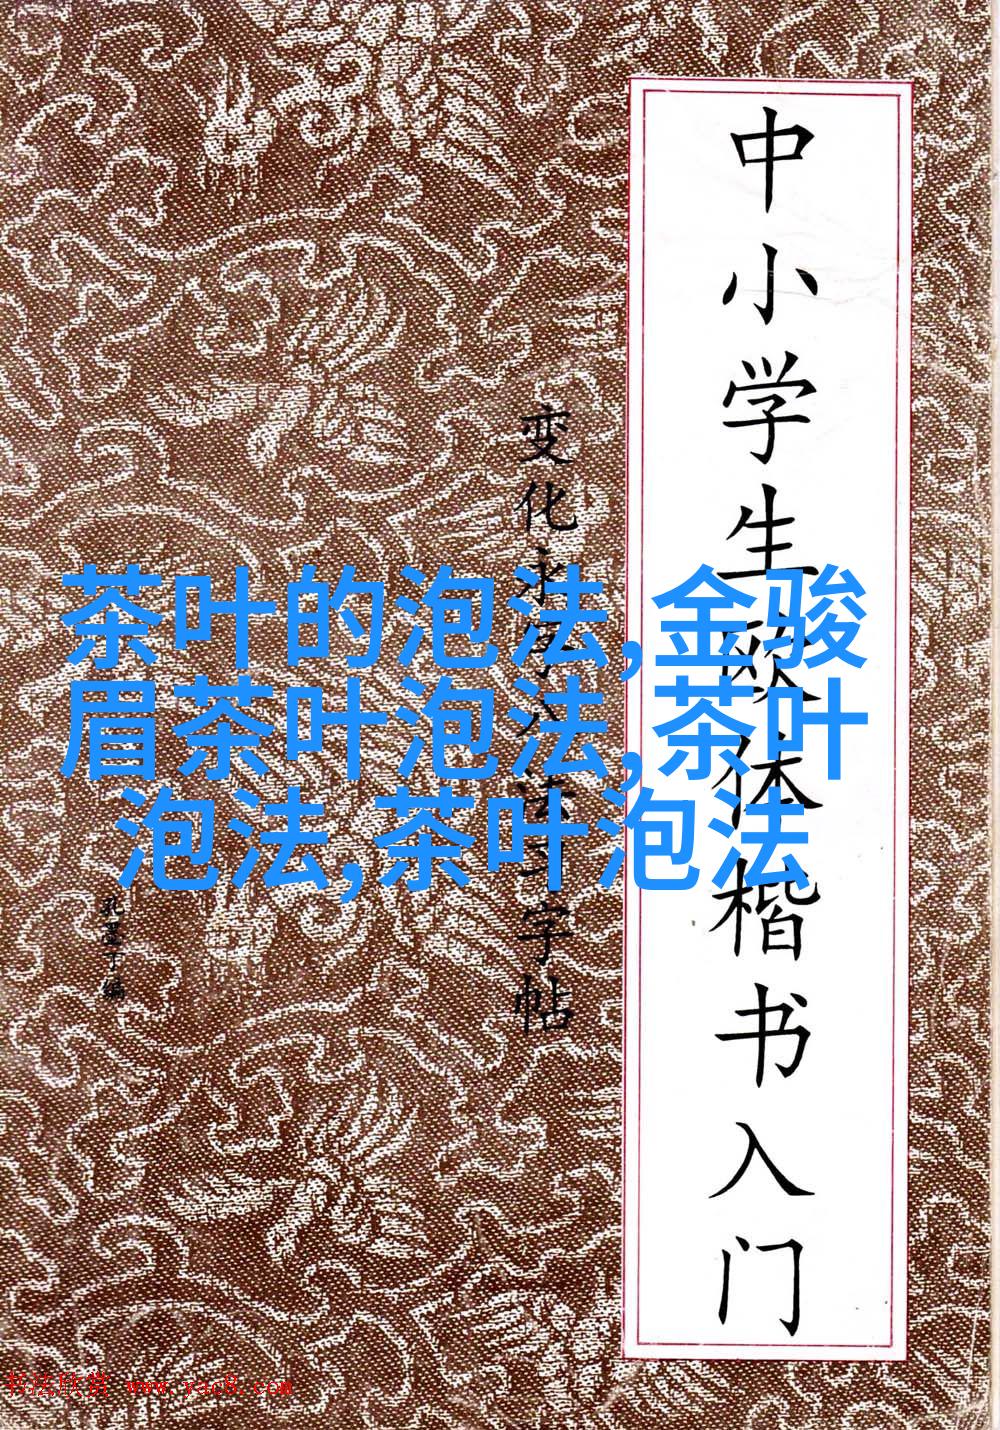 中小学生欧体楷书入门
变化永字八法习字帖
孔墨丁编
茶叶的泡法,金骏
眉茶叶泡法,茶叶
泡法,茶叶泡法
书法欣赏 www.yac8.com